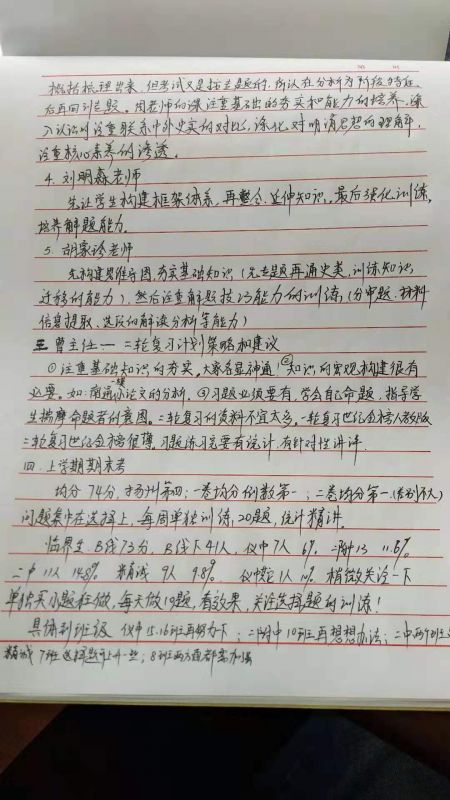 概括梳理出来，但考试又是拓宽主题的，所以在分析为阶段特征，
后再回到主题。周老师的课注重基础的夯实和能力的培养，深
入认识到注重联系中外史实的对比，深化对明清思想的理解，
注重核心素养的渗透。
4. 刘明淼老师
先让学生构建框架体系，再整合、延伸知识，最后强化训练，
培养解题能力。
5. 胡家玲老师
先构建思维导图，夯实基础知识（先专题再通史类，训练知识
迁移的能力），然后注重解题技巧能力的训练（分审题、材料
信息提取、选项的解读分析等能力）
三 曾主任一 二轮复习计划策略和建议
①注重基础知识的夯实，大家各显神通！②知识的宏观构建很有
必要。如：南通一模小论文的分析。③习题必须要有，学会自己命题，指导学
生揣摩命题者的意图。二轮复习的资料不宜太多，一轮复习
二轮复习 很薄，习题练习完要有统计，有针对性讲评。
四、上学期期末考
均分 74分，扬州第四；一卷均分倒数第一；二卷均分第一
问题集中在选择上，每周单独训练，20题，统计精讲。
临界生：B线73分，B线下41人，仪中7人 6% 二附中13 11.6%
二中11人 14.8% 精诚 9人 9.8% 1人 10% 稍微关注一下
单独买小题狂做，每天做10题，有效果，关注选择题的训练！
具体到班级 仪中15.16班再努力一下；二附中10班再想想办法；二中
精诚 7班选择题上升一些；8班两方面都需加强